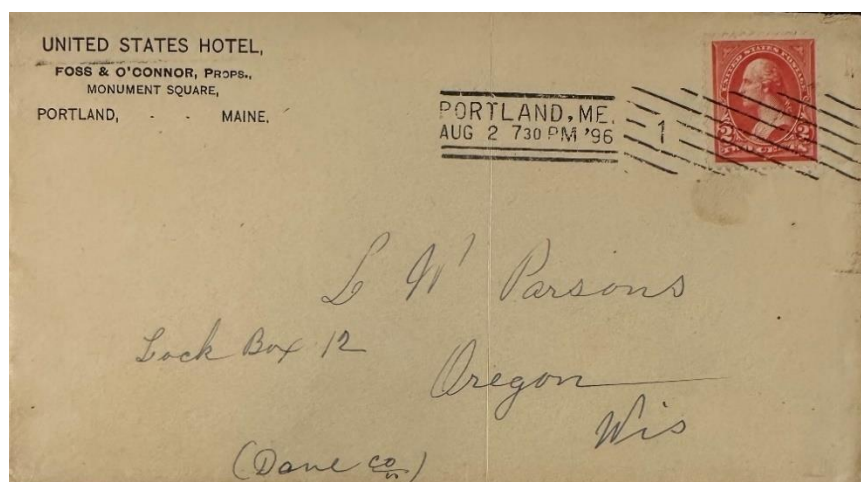 UNITED STATES HOTEL,
FOSS & O'CONNOR, PROPS.,
MONUMENT SQUARE,
PORTLAND, - - MAINE.
PORTLAND, ME.
AUG 2 730 PM '96
1
UNITED STATES POSTAGE
2 2
TWO CENTS
L W Parsons
Lock Box 12
Oregon
Wis
(Dane co)